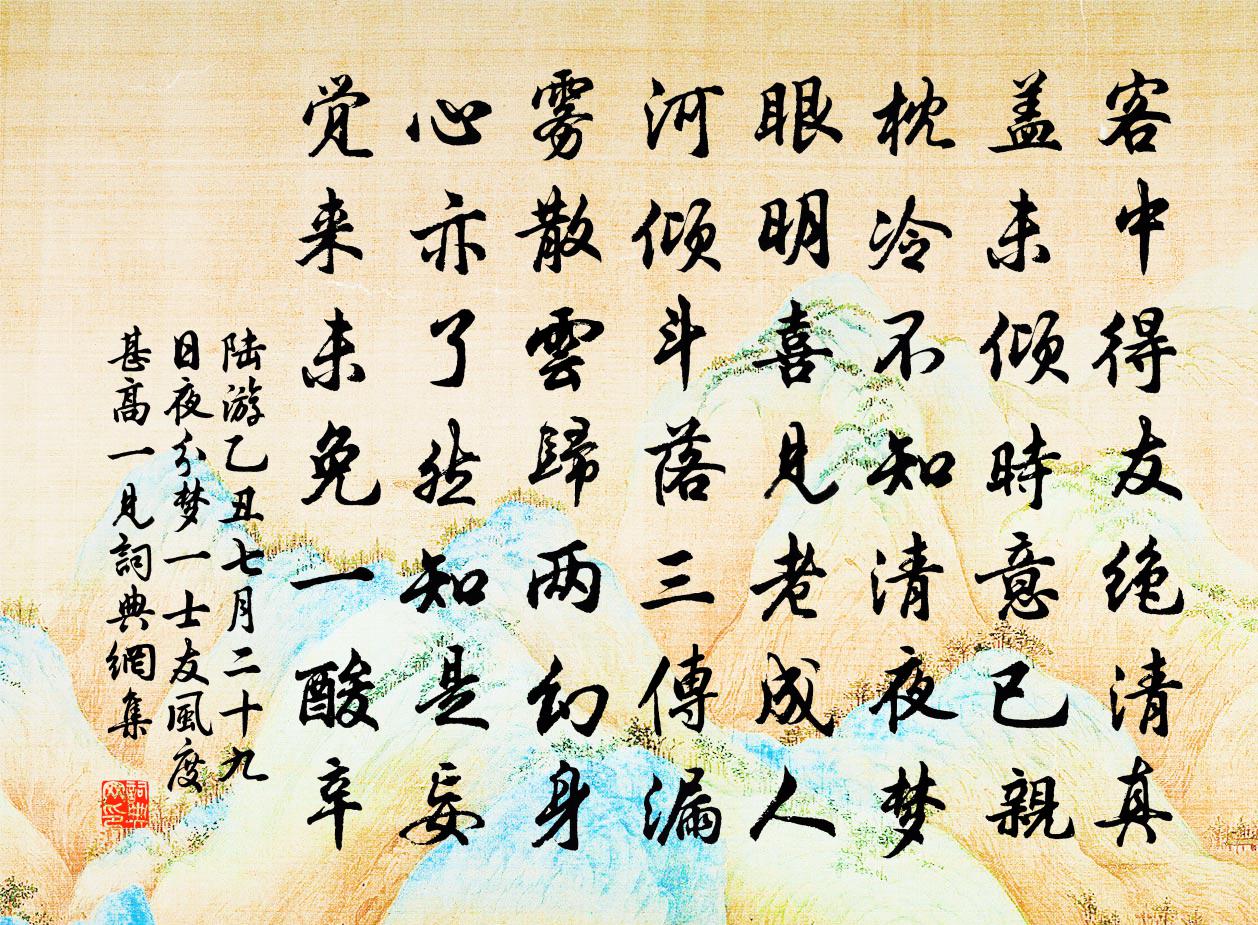 客中得友绝清真
盖未倾時意已親
枕冷不知清夜梦
眼明喜見老成人
河倾斗落三傳漏
雾散雲歸两幻身
心亦了然知是妄
觉来未免一酸辛
陆游乙丑七月二十九
日夜分梦一士友風度
甚高一見詞典網集